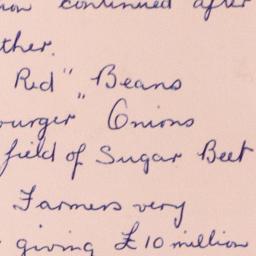 continued after
ther.
Red" " Beans
ourger Onions
field of Sugar Beet
Farmers very
giving £10 million